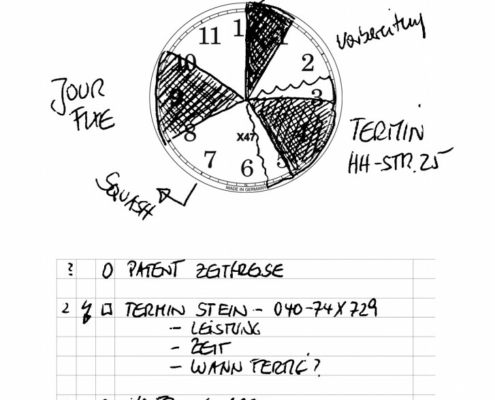 11
1
1
2
3
10
9
8
7
6
5
X47
MADE IN GERMANY
Vorbereitung
JOUR
FIXE
TERMIN
HH-STR. 25
SQUASH
? O PATENT ZEITFRESSE
2 TERMIN STEIN - 040-74X729
- LEISTUNG
- ZEIT
- WANN FERTIG?